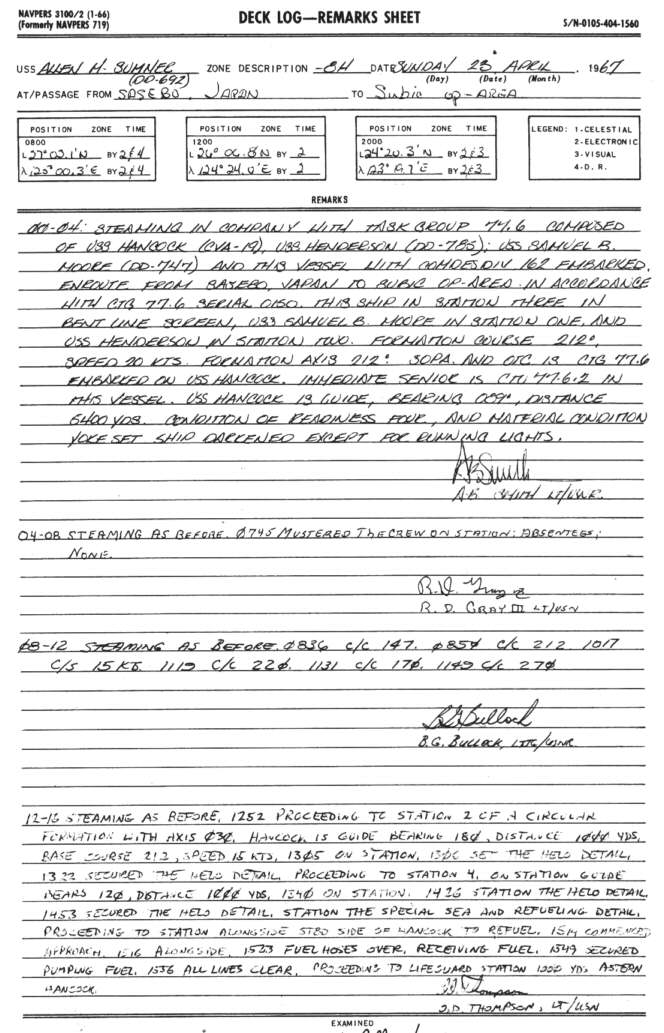 NAVPERS 3100/2 (1-66)
(Formerly NAVPERS 719)
DECK LOG—REMARKS SHEET
S/N-0105-404-1560
USS ALLEN M. SUMNER (DD-692) ZONE DESCRIPTION -8H DATE SUNDAY 23 APRIL, 1967
(Day) (Date) (Month)
AT/PASSAGE FROM SASEBO, JAPAN TO Subic OP-AREA
POSITION ZONE TIME
0800
L 27° 02.1'N BY 2&4
λ 125° 00.3'E BY 2&4
POSITION ZONE TIME
1200
L 26° 06.8N BY 2
λ 124° 24.0'E BY 2
POSITION ZONE TIME
2000
L 24° 20.3'N BY 2&3
λ 123° 'E BY 2&3
LEGEND: 1-CELESTIAL
2-ELECTRONIC
3-VISUAL
4-D. R.
REMARKS
00-04: STEAMING IN COMPANY WITH TASK GROUP 77.6 COMPOSED
OF USS HANCOCK (CVA-19), USS HENDERSON (DD-785); USS SAMUEL B.
MOORE (DD-747) AND THIS VESSEL WITH COMDESDIV 162 EMBARKED,
ENROUTE FROM SASEBO, JAPAN TO SUBIC OP-AREA IN ACCORDANCE
WITH CTG 77.6 SERIAL 0150. THIS SHIP IN STATION THREE IN
BENT LINE SCREEN, USS SAMUEL B. MOORE IN STATION ONE, AND
USS HENDERSON IN STATION TWO. FORMATION COURSE 212°,
SPEED 20 KTS. FORMATION AXIS 212°. SOPA AND OTC IS CTG 77.6
EMBARKED ON USS HANCOCK. IMMEDIATE SENIOR IS CTU 77.6.2 IN
THIS VESSEL. USS HANCOCK IS GUIDE, BEARING 009°, DISTANCE
6400 YDS. CONDITION OF READINESS FOUR, AND MATERIAL CONDITION
YOKE SET SHIP DARKENED EXCEPT FOR RUNNING LIGHTS.
SMITH LT/USNR
04-08 STEAMING AS BEFORE. Ø745 MUSTERED THE CREW ON STATION: ABSENTEES;
NONE.
R. D. GRAY III LT/USN
Ø8-12 STEAMING AS BEFORE. Ø836 C/C 147. Ø854 C/C 212 1017
C/S 15 KTS. 1119 C/C 22Ø. 1131 C/C 17Ø. 1149 C/C 27Ø
B.G. Bullock
B.G. BULLOCK, LTJG/USNR
12-16 STEAMING AS BEFORE, 1252 PROCEEDING TO STATION 2 OF A CIRCULAR
FORMATION WITH AXIS Ø3Ø, HANCOCK IS GUIDE BEARING 18Ø, DISTANCE 1ØØØ YDS,
BASE COURSE 212, SPEED 15 KTS, 13Ø5 ON STATION, SET THE HELO DETAIL,
1322 SECURED THE HELO DETAIL, PROCEEDING TO STATION 4, ON STATION GUIDE
BEARS 12Ø, DISTANCE 1ØØØ YDS, 134Ø ON STATION. 1426 STATION THE HELO DETAIL,
1453 SECURED THE HELO DETAIL, STATION THE SPECIAL SEA AND REFUELING DETAIL,
PROCEEDING TO STATION ALONGSIDE STBD SIDE OF HANCOCK TO REFUEL. 1514 COMMENCED
APPROACH, 1516 ALONGSIDE, 1523 FUEL HOSES OVER, RECEIVING FUEL, 1549 SECURED
PUMPING FUEL. 1556 ALL LINES CLEAR, PROCEEDING TO LIFEGUARD STATION 1000 YDS ASTERN
HANCOCK.
Thompson
J.D. THOMPSON, LT/USN
EXAMINED